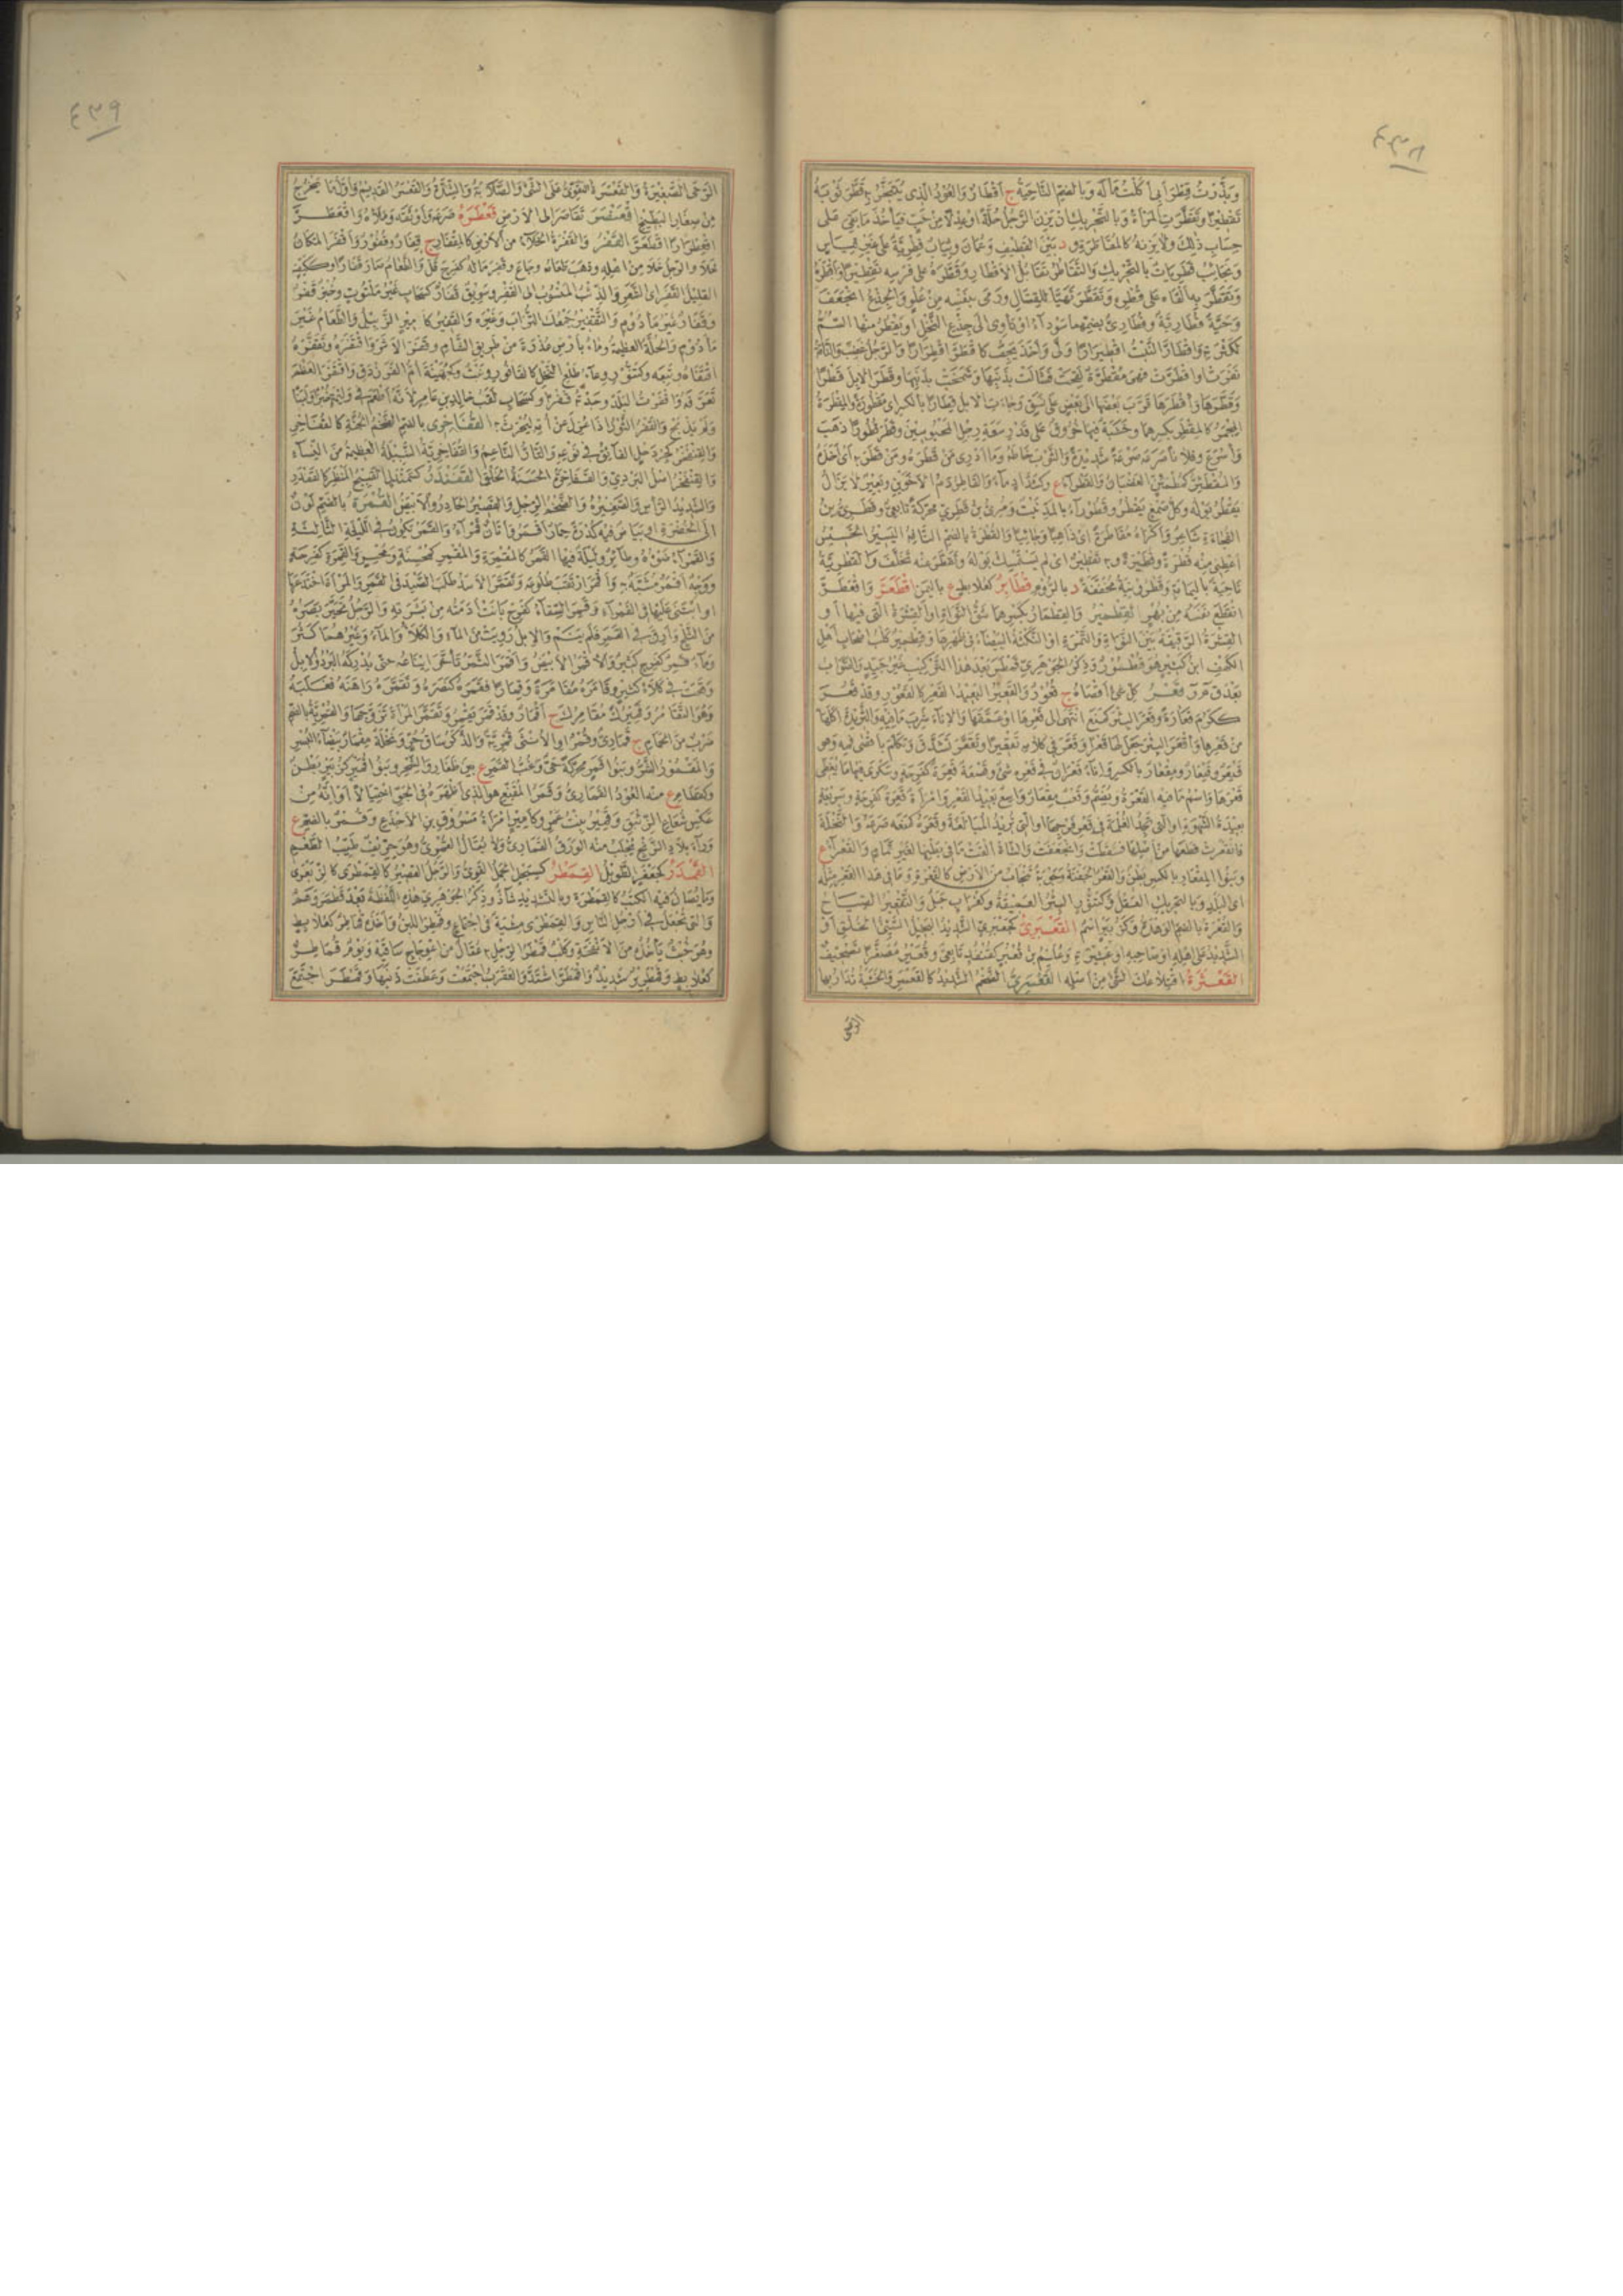 ٤٣٨
وبذرت قطر أبي أكلت ماله وبالضم الناحية ج أقطار والعود الذي يتبخر به قطر ثوبه
تقطيرا وتقطرت المرأة وبالتحريك ان يزن الرجل جلة او عدلا من حب فيأخذ ما بقي على
حساب ذلك ولا يزنه كالمقاطرة و د بين القطيف وعمان وثياب قطرية على غير قياس
ونجائب قطريات بالتحريك والتقاطر تقابل الاقطار وقطره على فرسه تقطيرا وأقطره
وتقطر به القاه على قطره وتقطر تهيأ للقتال ورمى بنفسه من علو والجذع انجعف
وحية قطارية وقطاري بضمهما سوداء او تاوى الى جذع النخل او يقطر منها السم
لكثرته واقطار النبت اقطيرارا ولى واخذ يجف كاقطر اقطرارا والرجل غضب والناقة
نفرت او اقطرت فهي مقطرة لقحت فشالت بذنبها وشمخت برأسها وقطر الابل قطرا
وقطرها واقطرها قرب بعضها الى بعض على نسق وجاءت الابل قطارا بالكسر اي مقطورة والمقطرة
المجمر كالمقطر بكسرهما وخشبة فيها خروق على قدر سعة رجل المحبوسين وقطر قطورا ذهب
واسرع وفلانا صرعه صرعة شديدة والثوب خاطه وما ادري من قطره ومن قطر به اي اخذه
والمقطئر كمطمئن الغضبان والقطراء ع وككتاب ماء والقاطر دم الاخوين وبعير لا يزال
يقطر بوله وكل صمغ يقطر وقطوراء بالمد نبت ومرى بن قطري محركة تابعي وقطري بن
الفجاءة شاعر واكراه مقاطرة اي ذاهبا وجائيا والقطرة بالضم التافه اليسير الخسيس
اعطني منه قطرة وقطيرة وبه تقطير اي لم يستمسك بوله وتقطر عنه تخلف والقطرية
ناحية باليمامة وقطرونية مخففة د بالروم قطابر كعلابط ع باليمن اقطعر واقعطر
انقطع نفسه من بهر القطمير والقطمار بكسرهما شق النواة او القشرة التي فيها او
القشرة الرقيقة بين النواة والتمرة او النكتة البيضاء في ظهرها وقطمير كلب اصحاب اهل
الكهف ابن كثير هو قطمور وذكر الجوهري قمطر بعد هذا التركيب غير جيد والصواب
بعد ق م ر قعر كل شيء اقصاه ج قعور والقعير البعيد القعر كالقعور وقد قعر
ككرم قعارة وقعر البئر كمنع انتهى الى قعرها او عمقها والاناء شرب ما فيه والثريدة اكلها
من قعرها واقعر البئر جعل لها قعرا وقعر في كلامه تقعيرا وتقعر تشدق وتكلم باقصى فيه وهو
قيعر وقيعار ومقعار بالكسر واناء قعران في قعره شيء وقصعة قعرة كفرحة وسكرى فيها ما يغطي
قعرها واسم ما فيه القعرة ويضم وقعب مقعار واسع بعيد القعر وامرأة قعرة كفرحة وسريعة
بعيدة الشهوة او التي تجد الغلمة في قعر فرجها او التي تريد المبالغة وقعره كمنعه صرعه والنخلة
فانقعرت قطعها من اصلها فسقطت وانجعفت والشاة القت ما في بطنها لغير تمام والقعراء ع
وبنو المقعار بالكسر بطن والقعر الجفنة وجوبة تنجاب من الارض كالقعرة وما في هذا القعر مثله
اي البلد وبالتحريك العقل وكتنور البئر العميقة وكغراب جبل والتقعير الصياح
والقعرة بالضم الوهدة وكزبير اسم القعبري كجعفري الشديد البخيل السيئ الخلق او
الشديد على اهله او صاحبه او عشيرته وعليم بن قعبر كقنفذ تابعي وقعير مصغرا تصحيف
القعثرة اقتلاعك الشيء من اصله القعسري الضخم الشديد كالقعسر والخشبة تدار بها
الرحى
٤٣٩
الرحى الصغيرة والقعسرة التقوي على الشيء والصلابة والشدة والقعسر القديم واول ما يخرج
من صغار البطيخ اقعنصر تقاصر الى الارض قعطره صرعه واوثقه وملأه واقعطر
اقعطرارا اقطعر القفر والقفرة الخلاء من الارض كالمقفار ج قفار وقفور واقفر المكان
خلا والرجل خلا من اهله وذهب طعامه وجاع وقفر ماله كفرح قل والطعام صار قفارا وككتف
القليل القفر اي الشعر والذئب المنسوب الى القفر وسويق قفار كسحاب غير ملتوت وخبز قفر
وقفار غير مأدوم والتقفير جمعك التراب وغيره والقفير كامير الزبيل والطعام غير
مأدوم والجلة العظيمة وماء بارض عذرة من طريق الشام وقفر الاثر واقتفره وتقفره
اقتفاه وتتبعه وكتنور وعاء طلع النخل كالقافور ونبت وكجهينة ام الفرزدق واقتفر العظم
تعرقه واقفرت البلد وجدته قفرا وكسحاب لقب خالد بن عامر لانه اطعم في وليمة خبزا ولبنا
ولم يذبح والقفر الثور اذا عزل عن امه ليحرث به القفاخري بالضم الضخم الجثة كالقفاخر
والقنفخر كجردحل الفائق في نوعه والتار الناعم والقفاخرية النبيلة العظيمة من النساء
والقنفخر اصل البردي والقفاخرة الحسنة الخلق القفندر كسمندل القبيح المنظر كالقفدر
والشديد الرأس والصغيرة والضخم الرجل والقصير الحادر والابيض القمرة بالضم لون
الى الخضرة او بياض فيه كدرة حمار اقمر واتان قمراء والقمر يكون في الليلة الثالثة
والقمراء ضوءه وطائر وليلة فيها القمر كالمقمرة والمقمر كمحسنة ومحسن والقمرة كفرحة
ووجه اقمر مشبه به واقمر ارتقب طلوعه وتقمر الاسد طلب الصيد في القمر والمرأة اختدعها
او ابتنى عليها في القمراء وقمر السقاء كفرح بانت ادمته من بشرته والرجل تحير بصره
من الثلج وارق في القمر فلم ينم والابل رويت من الماء والكلا والماء وغيرهما كثر
وماء قمر كفرح كثير والاقمر الابيض واقمر الثمر تأخر ايناعه حتى يدركه البرد والابل
وقعت في كلا كثير وقامره مقامرة وقمارا فقمره كنصره وتقمره راهنه فغلبه
وهو التقامر وقميرك مقامرك ج اقمار وقد قمر يقمر وتقمر المرأة تزوجها والقمرية بالضم
ضرب من الحمام ج قماري وقمر او الانثى قمرية والذكر ساق حر ونخلة مقمار بيضاء البسر
والمقمور الشر وبنو قمر محركة حي وغب القمر ع بين ظفار والشحر وبنو قمير كزبير بطن
وكقطام ع منه العود القماري وقمر المقنع هو الذي اظهره في الجو احتيالا او انه من
عكس شعاع الزئبق وقمير بنت عمرو كامير امرأة مسروق بن الاجدع وقمر بالضم ع
وراء بلاد الزنج يجلب منه الورق القماري ولا يقال القمري وهو حريف طيب الطعم
القمدر كجعفر الطويل القمطر كسبحل الجمل القوي والرجل القصير كالقمطرى كالزبعرى
وما يصان فيه الكتب كالقمطرة وبالتشديد شاذ وذكر الجوهري هذه اللفظة بعد قطمر وهم
والتي تجعل في ارجل الناس والقمطرى مشية في اجتماع وقمطر اللبن واخذه قماطر كعلابط
وهو خبث يأخذه من الانفحة وكلب قمطر الرجل به عقال من اعوجاج ساقيه ويوم قماطر
كعلابط وقمطرير شديد واقمطر اشتد والعقرب اجتمعت وعطفت ذنبها وقمطر اجتمع